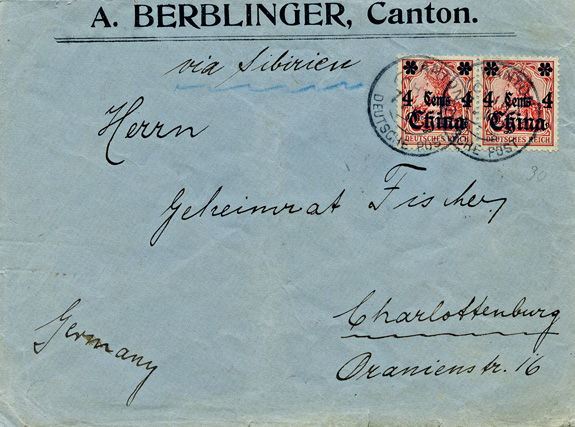 A. BERBLINGER, Canton.
via Sibirien
4 Cents 4
China
DEUTSCHES REICH
4 Cents 4
China
DEUTSCHES REICH
CANTON
DEUTSCHE POST
Herrn
Geheimrat Fischer,
Charlottenburg
Oranienstr. 16
Germany